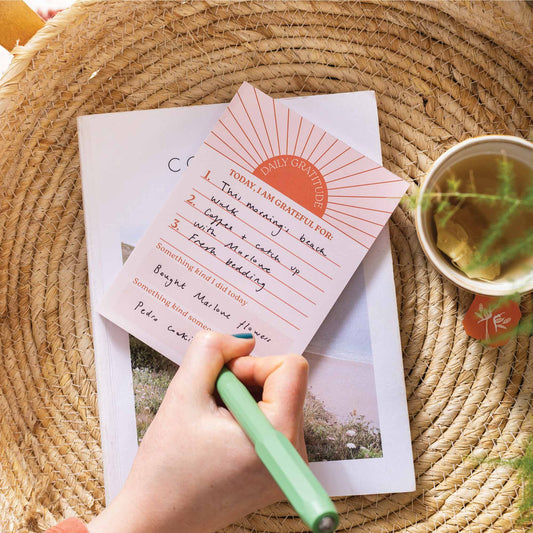 CO
DAILY GRATITUDE
TODAY, I AM GRATEFUL FOR:
1. This morning's beach
walk
2. Coffee + catch up
3. with Marlowe
Fresh bedding
Something kind I did today
Bought Marlowe flowers
Something kind
Pedro